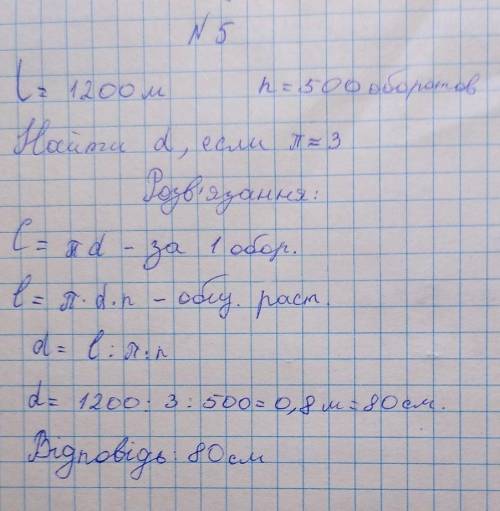 N 5
l = 1200 м n = 500 оборотов
Найти d, если π ≈ 3
Розв'язання:
C = πd - за 1 обор.
l = π · d · n - общ. раст.
d = l : π : n
d = 1200 : 3 : 500 = 0,8 м = 80 см.
Відповідь: 80 см